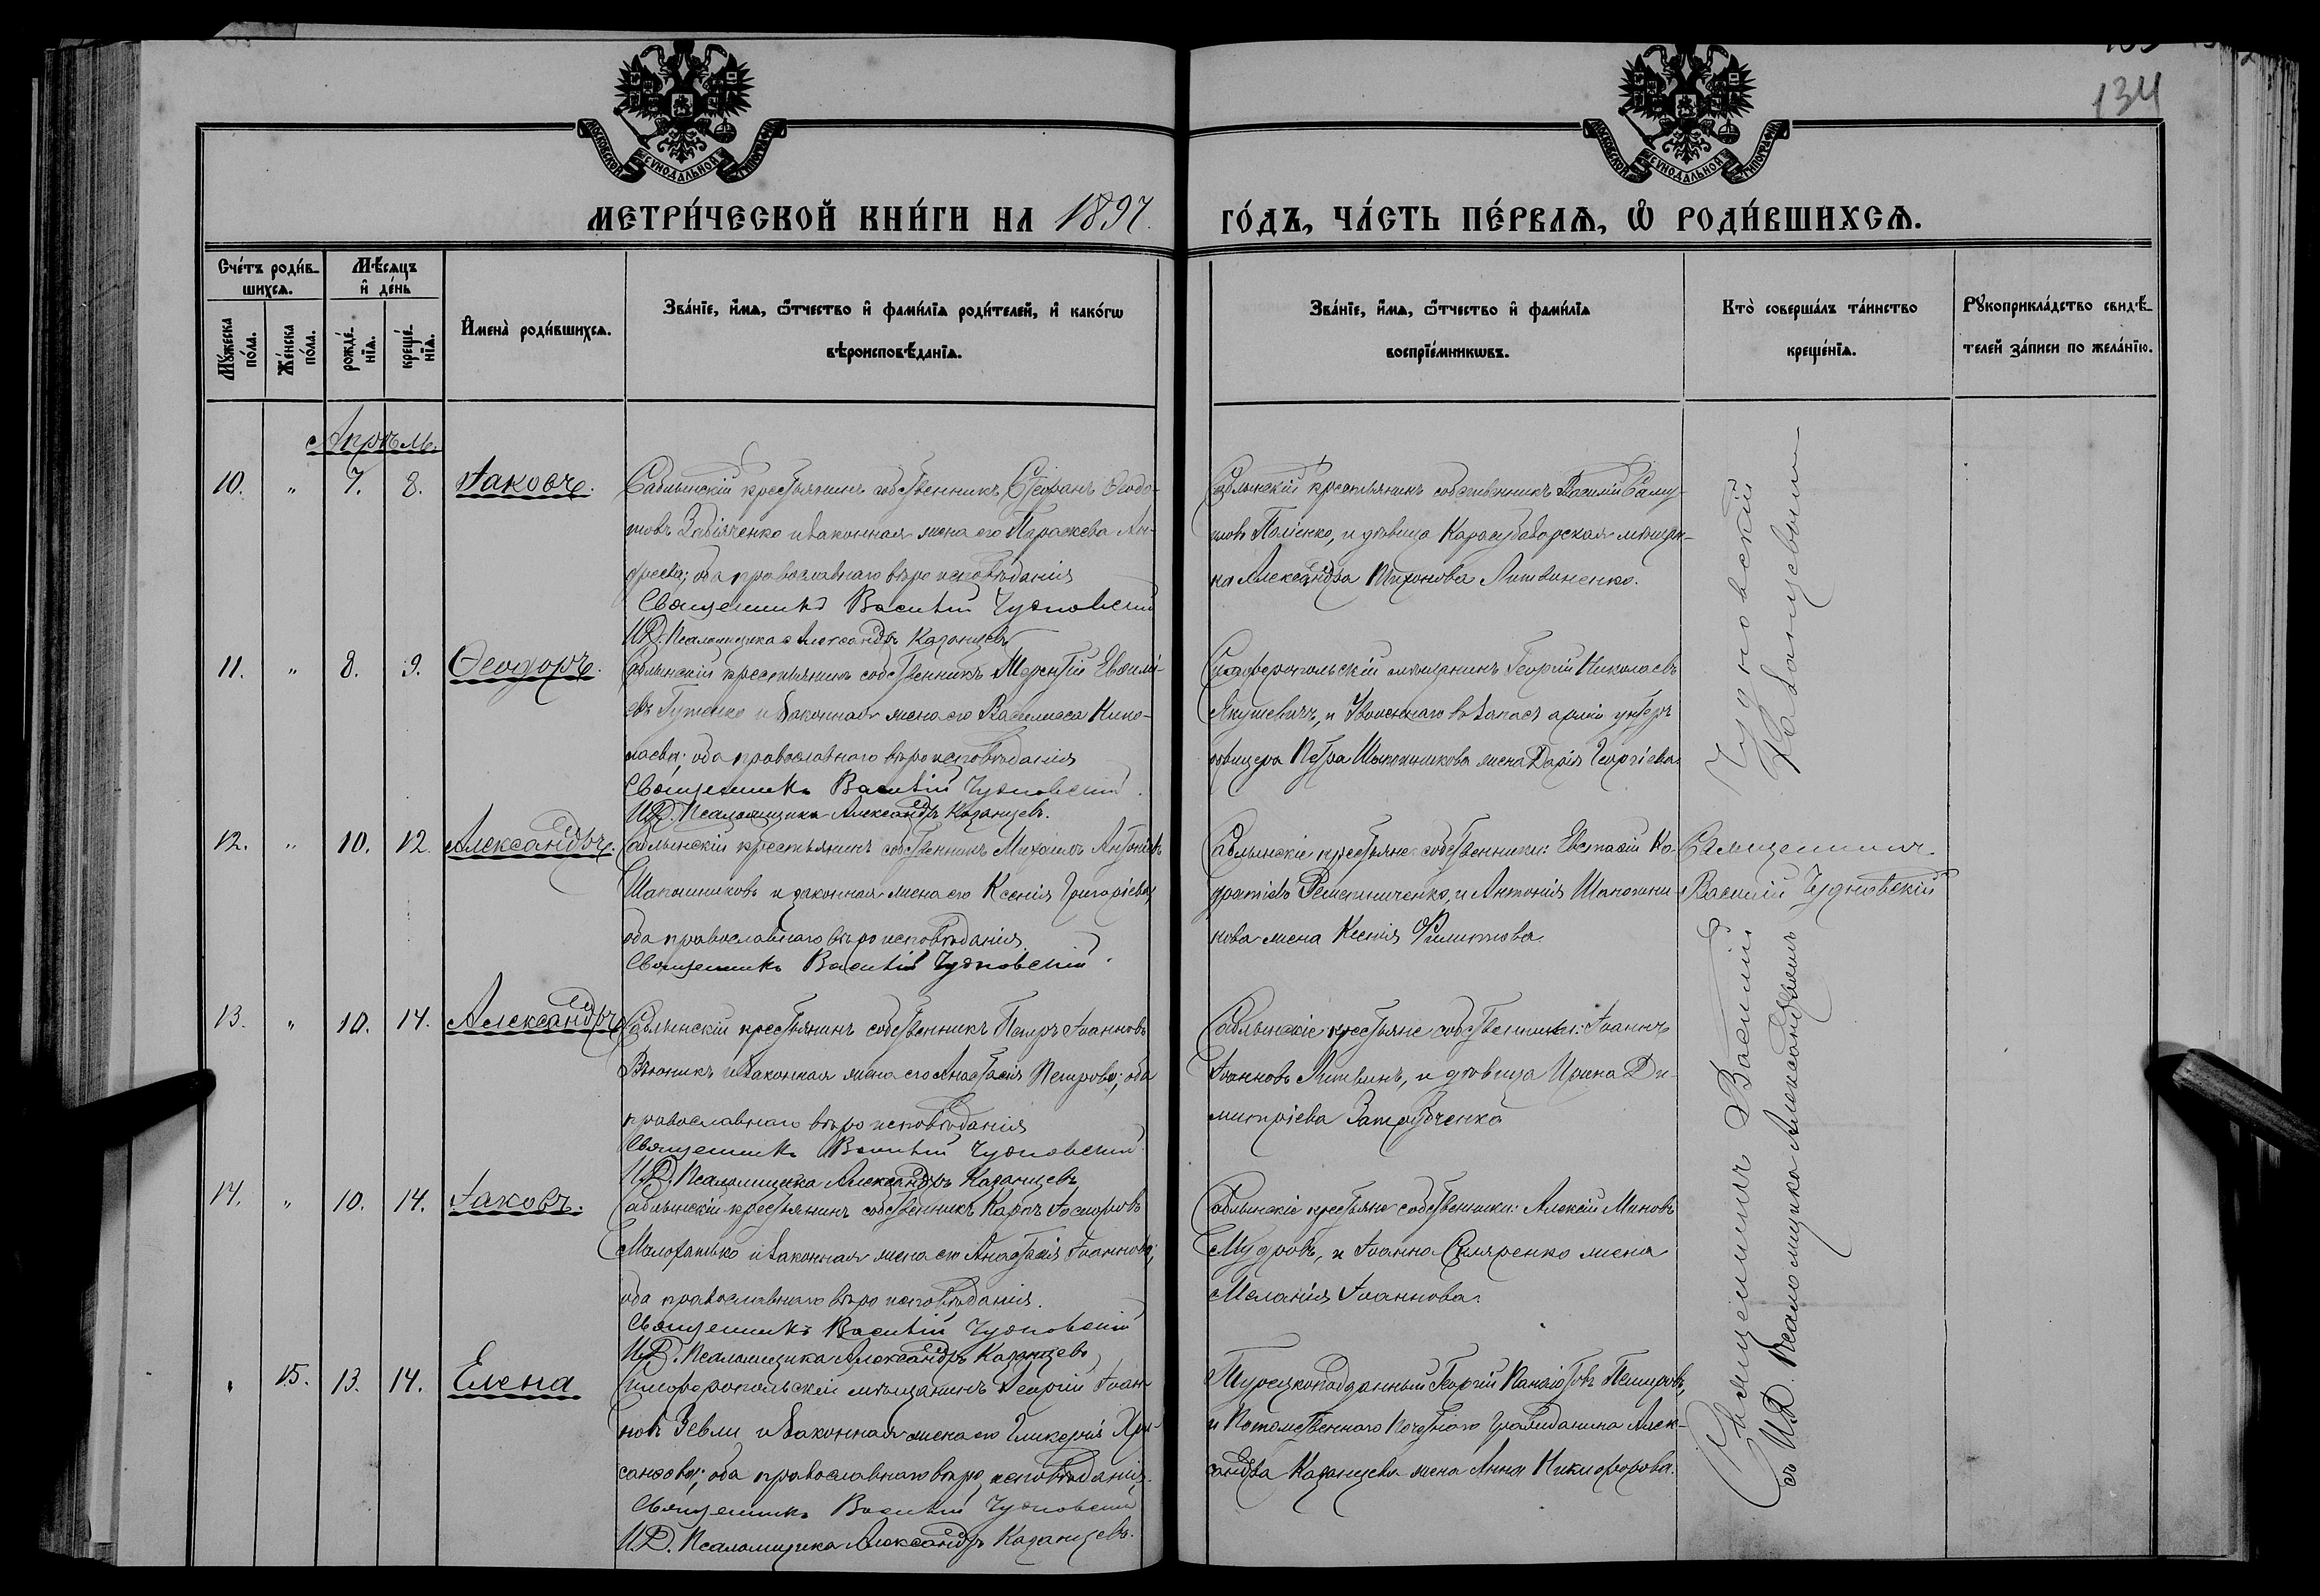 134
МОСКОВСКОЙ СѴНОДАЛЬНОЙ ТИПОГРАФІИ
МОСКОВСКОЙ СѴНОДАЛЬНОЙ ТИПОГРАФІИ
МЕТРИ́ЧЕСКОЙ КНИ́ГИ НА 1897.
ГО́ДЪ, ЧА́СТЬ ПЕ́РВАѦ, Ѡ РОДИ́ВШИХСѦ.
Сче́тъ роди́в-
шихсѧ.
Мѣ́сѧцъ
и де́нь
Мꙋ́жеска
по́ла.
Же́нска
по́ла.
рожде́-
нїѧ.
креще́-
нїѧ.
Имена̀ роди́вшихсѧ.
Зва́нїе, и́мѧ, ѻ́тчество и фами́лїѧ роди́телей, и како́гѡ
вѣроисповѣ́данїѧ.
Зва́нїе, и́мѧ, ѻ́тчество и фами́лїѧ
воспрїе́мникѡвъ.
Кто̀ соверша́лъ та́инство
креще́нїѧ.
Рꙋкоприкла́дство свидѣ́-
телей за́писи по жела́нїю.
Апрѣль.
10. " 7. 8. Іаковъ.
Саблынскій крестьянинъ собственникъ Стефанъ Ѳеодо-
товъ Забіяченко и законная жена его Параскева Ан-
дреева; оба православнаго вѣроисповѣданія
Священникъ Василій Чудновскій
И.Д. Псаломщика Александръ Казанцевъ
Саблынскій крестьянинъ собственникъ Василій Саму-
иловъ Поліенко, и дѣвица Карасубазарская мѣщан-
ка Александра Тихонова Литвиненко.
11. " 8. 9. Ѳеодоръ.
Саблынскій крестьянинъ собственникъ Терентій Евѳимі-
евъ Гутенко и законная жена его Василиса Нико-
лаева; оба православнаго вѣроисповѣданія
Священникъ Василій Чудновскій.
И.Д. Псаломщика Александръ Казанцевъ.
Симферопольскій мѣщанинъ Георгій Николаевъ
Якушевичъ, и Уволеннаго въ запасъ арміи унтеръ
офицера Петра Шапошникова жена Дарія Георгіева.
12. " 10. 12. Александръ.
Саблынскій крестьянинъ собственникъ Михаилъ Антоніевъ
Шапошниковъ и законная жена его Ксенія Григоріева,
оба православнаго вѣроисповѣданія.
Священникъ Василій Чудновскій.
Саблынскіе крестьяне собственники: Евстафій Ко-
дратіевъ Решетниченко, и Антонія Шапошни-
кова жена Ксенія Филиппова.
Священникъ
Василій Чудновскій
13. " 10. 14. Александръ
Саблынскій крестьянинъ собственникъ Петръ Іоанновъ
Вьюникъ и законная жена его Анастасія Петрова; оба
православнаго вѣроисповѣданія
Священникъ Василій Чудновскій
И.Д. Псаломщика Александръ Казанцевъ
Саблынскіе крестьяне собственники: Іоаннъ
Іоанновъ Литвинъ, и дѣвица Ирина Ди-
митріева
14. " 10. 14. Іаковъ.
Саблынскій крестьянинъ собственникъ Карпъ Іосифовъ
и законная жена его Анастасія Іоаннова;
оба православнаго вѣроисповѣданія.
Священникъ Василій Чудновскій
И.Д. Псаломщика Александръ Казанцевъ
Саблынскіе крестьяне собственники: Алексій Миновъ
Мудровъ, и Іоанна Скляренко жена
Меланія Іоаннова.
" 15. 13. 14. Елена
Симферопольскій мѣщанинъ Георгій Іоан-
новъ Зевли и законная жена его Гликерія Хри-
санѳова; оба православнаго вѣроисповѣданія.
Священникъ Василій Чудновскій
И.Д. Псаломщика Александръ Казанцевъ.
Турецкоподданный Георгій Панаіотовъ Петровъ,
и Потомственнаго Почетнаго Гражданина Алек-
сандра Казанцева жена Анна Никифорова.
Священникъ Василій Чудновскій
съ И.Д. Псаломщика Александромъ Казанцевымъ